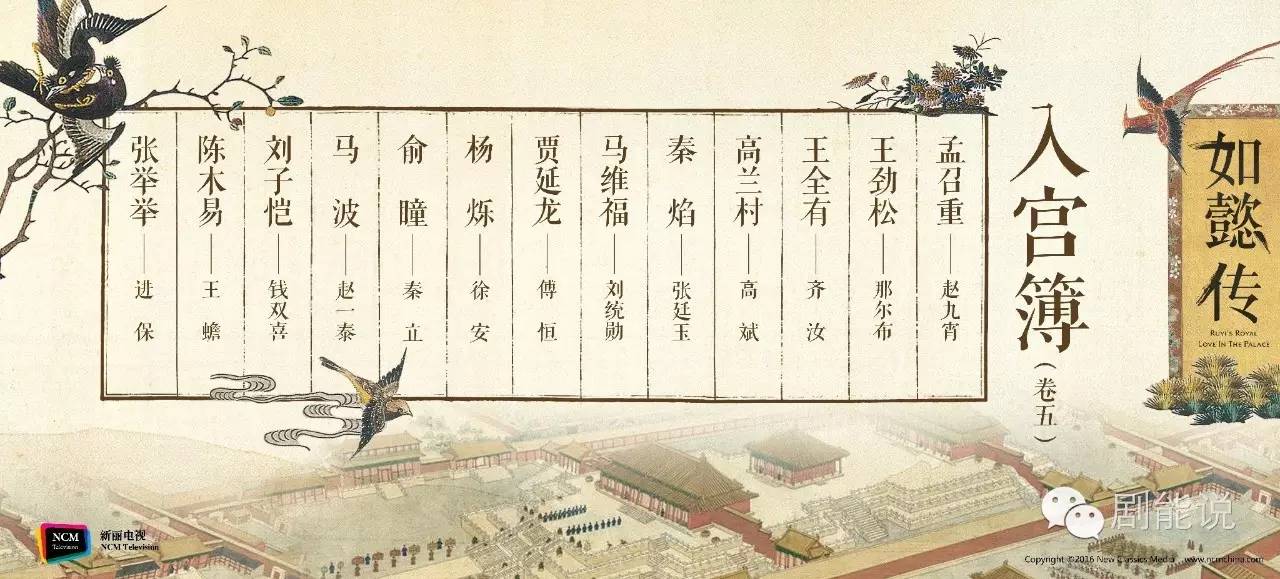 如懿传
RUYI'S ROYAL
LOVE IN THE PALACE
入宫簿(卷五)
孟召重——赵九宵
王劲松——那尔布
王全有——齐汝
高兰村——高斌
秦焰——张廷玉
马维福——刘统勋
贾延龙——傅恒
杨烁——徐安
俞瞳——秦立
马波——赵一泰
刘子恺——钱双喜
陈木易——王蟾
张举举——进保
NCM
Television
新丽电视
NCM Television
剧能说
Copyright ©2016 New Classics Media www.ncmchina.com